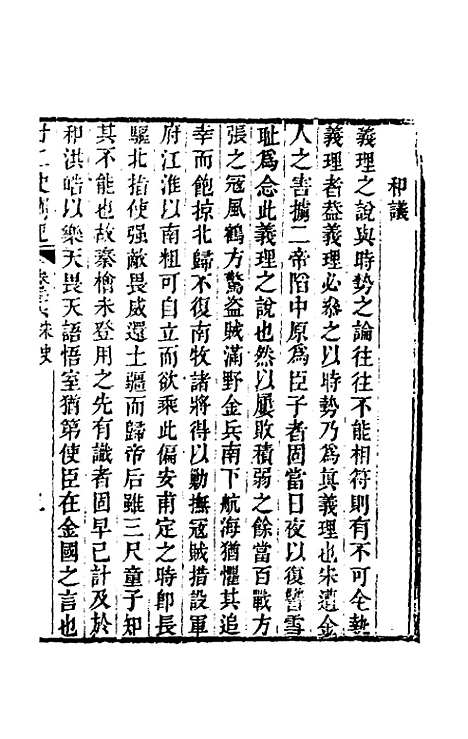 和議
義理之說與時勢之論往往不能相符則有不可全執
義理者葢義理必參之以時勢乃爲真義理也宋遭金
人之害擄二帝陷中原爲臣子者固當日夜以復讐雪
耻爲念此義理之說也然以屢敗積弱之餘當百戰方
張之冦風鶴方驚盜賊滿野金兵南下航海猶懼其追
幸而飽掠北歸不復南牧諸將得以勦撫冦賊措設軍
府江淮以南粗可自立而欲乘此偏安甫定之時卽長
驅北指使强敵畏威還土疆而歸帝后雖三尺童子知
其不能也故秦檜未登用之先有識者固早已計及於
和洪皓以樂天畏天語悟室猶第使臣在金國之言也
廿二史劄記 卷 宋史